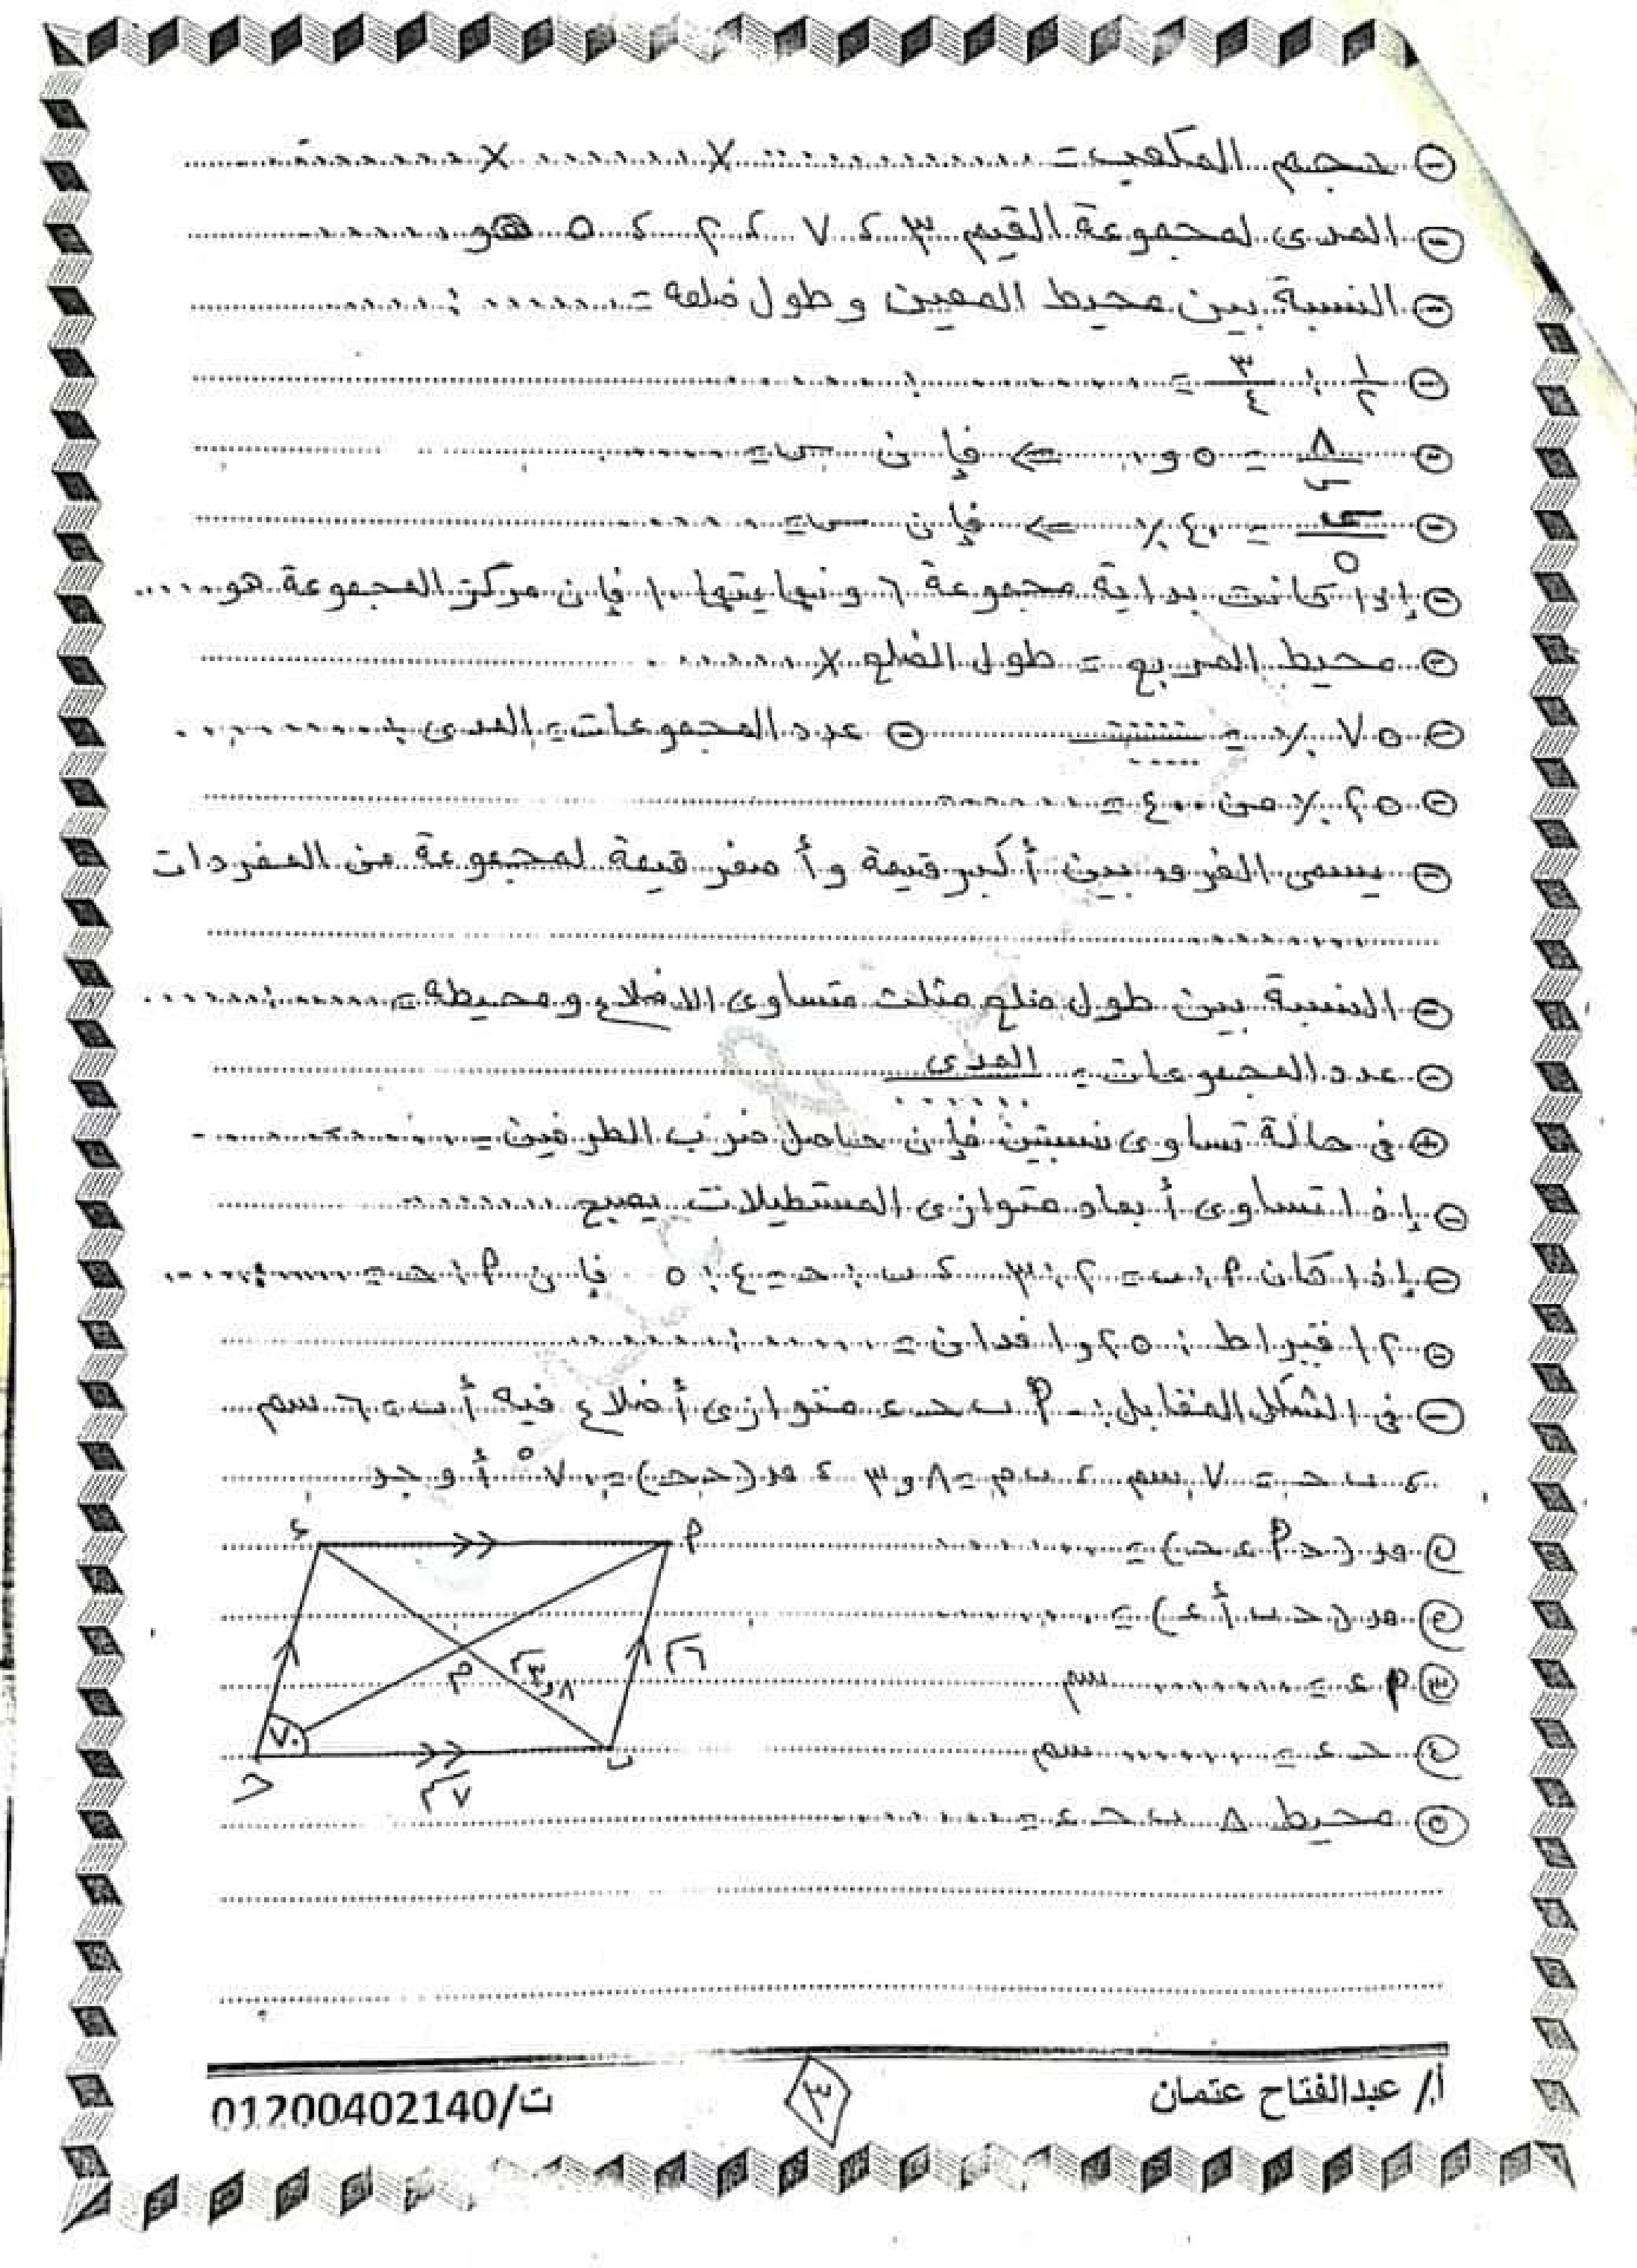 - حجم المكعب = ............ × ............ × ............
- المدى لمجموعة القيم ٣ ، ٧ ، ٢ ، ٥ هو ............
- النسبة بين محيط المعين وطول ضلعه = ............ : ............
- ١/٢ : ٣/٤ = ............ : ............
- ٨/س = ٥و٠ ⇐ فإن س = ............
- س/٥ = ٤٠ ٪ ⇐ فإن س = ............
- إذا كانت بداية مجموعة ٦ ونهايتها ١٠ فإن مركز المجموعة هو ......
- محيط المربع = طول الضلع × ............
- ٧٥ ٪ = ...... / ...... - عدد المجموعات = المدى ÷ ............
- ٢٥ ٪ من ٤٠٠ = ............
- يسمى الفرق بين أكبر قيمة وأصغر قيمة لمجموعة من المفردات
............
- النسبة بين طول ضلع مثلث متساوى الاضلاع ومحيطه = ...... : ......
- عدد المجموعات = المدى / ......
- فى حالة تساوى نسبتين فإن حاصل ضرب الطرفين = ............
- إذا تساوى أبعاد متوازى المستطيلات يصبح ............
- إذا كان أ : ب = ٢ : ٣ ، ب : حـ = ٤ : ٥ فإن أ : حـ = ...... : ......
- ١٢ قيراط : ٢٥و١ فدان = ...... : ......
- فى الشكل المقابل :- أ ب حـ ء متوازى أضلاع فيه أ ب = ٦ سم
، ب حـ = ٧ سم ، ب م = ٨و٣ ، ق (حـ) = ٧٠° أوجد
١ ق (أ ء حـ) = ............
٢ ق (ب أ ء) = ............
٣ م ء = ............ سم
٤ حـ ء = ............ سم
٥ محيط △ ب حـ ء = ............
ء أ
م ٣,٨سم ٦سم
٧٠
حـ ٧سم ب
أ./ عبدالفتاح عتمان ٣ ت/01200402140